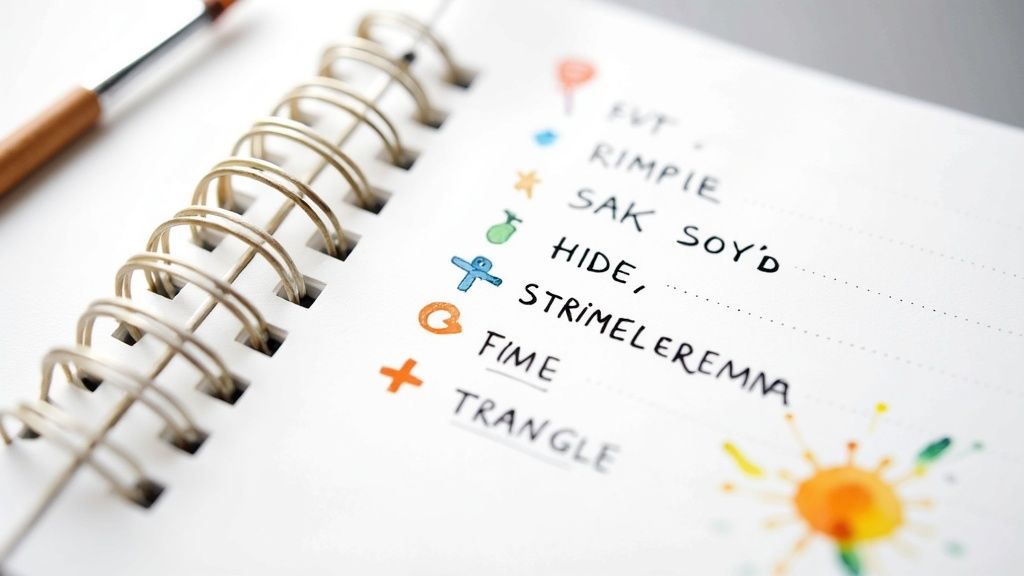 FVT
RIMPIE
SAK SOY'D
HIDE,
STRIMELEREMNA
FIME
TRANGLE